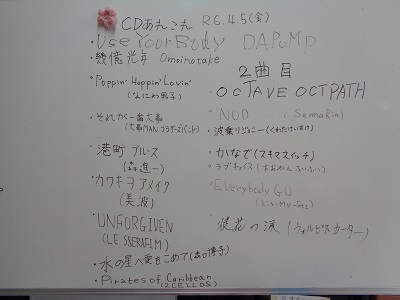 CDあれこれ R6.4.5(金)
・Use Your Body DAPUMP
・幾億光年 Omoinotake
・Poppin' Hoppin' Lovin'
(なにわ男子)
・それが一番大事
(大事MANブラザーズバンド)
・港町ブルース
(森 進一)
・カワキヲアメイク
(美波)
・UNFORGIVEN
(LE SSERAFIM)
・水の星へ愛をこめて(森口博子)
・Pirates of Caribbean
(2CELLOS)
2曲目
・OCTAVE OCTPATH
・NOD (SennaRin)
・波乗りジョニー(くわたけいすけ)
・かなで(スキマスイッチ)
・EveryBody GO
(Kis-My-Ft2)
(ウォルピスカーター)